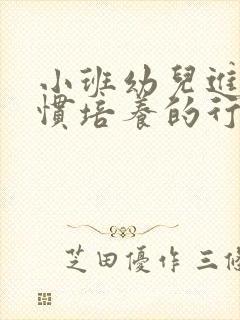 小班幼兒進
慣培養的行
芝田優作 三修